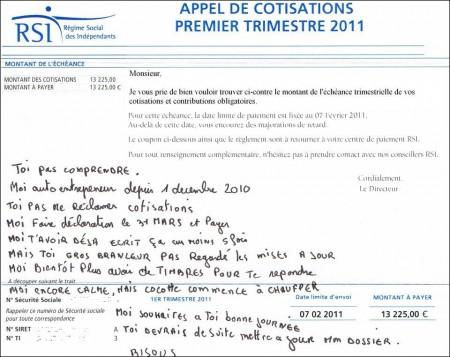 RSI
Régime Social
des Indépendants
APPEL DE COTISATIONS
PREMIER TRIMESTRE 2011
MONTANT DE L'ÉCHÉANCE
MONTANT DES COTISATIONS 13 225,00
MONTANT À PAYER 13 225,00 €
Monsieur,
Je vous prie de bien vouloir trouver ci-contre le montant de l'échéance trimestrielle de vos
cotisations et contributions obligatoires.
Pour cette échéance, la date limite de paiement est fixée au 07 Février 2011,
Au-delà de cette date, vous encourez des majorations de retard.
Le coupon ci-dessous ainsi que le règlement sont à retourner à votre centre de paiement RSI.
Pour tout renseignement complémentaire, n'hésitez pas à prendre contact avec nos conseillers RSI.
Cordialement,
Le Directeur
Toi pas comprendre.
Moi auto entrepreneur depuis 1 decembre 2010
Toi pas me réclamer cotisations
Moi faire déclaration le 31 MARS et Payer
Moi t'avoir déjà ecrit ça au moins 5 fois
Mais toi gros branleur pas regardé les mises a jour
Moi bientôt plus avoir de timbres pour te repondre
Moi encore calme, mais cocotte commence à chauffer
À découper suivant le trait
N° Sécurité Sociale
1ER TRIMESTRE 2011
Date limite d'envoi
MONTANT À PAYER
Rappeler ce numéro de Sécurité sociale
pour toute correspondance
07 02 2011
13 225,00 €
N° SIRET
N° TI
A
3
Moi souhaites a toi bonne journée
Toi devrais de suite mettre a jour mon dossier.
Bisous